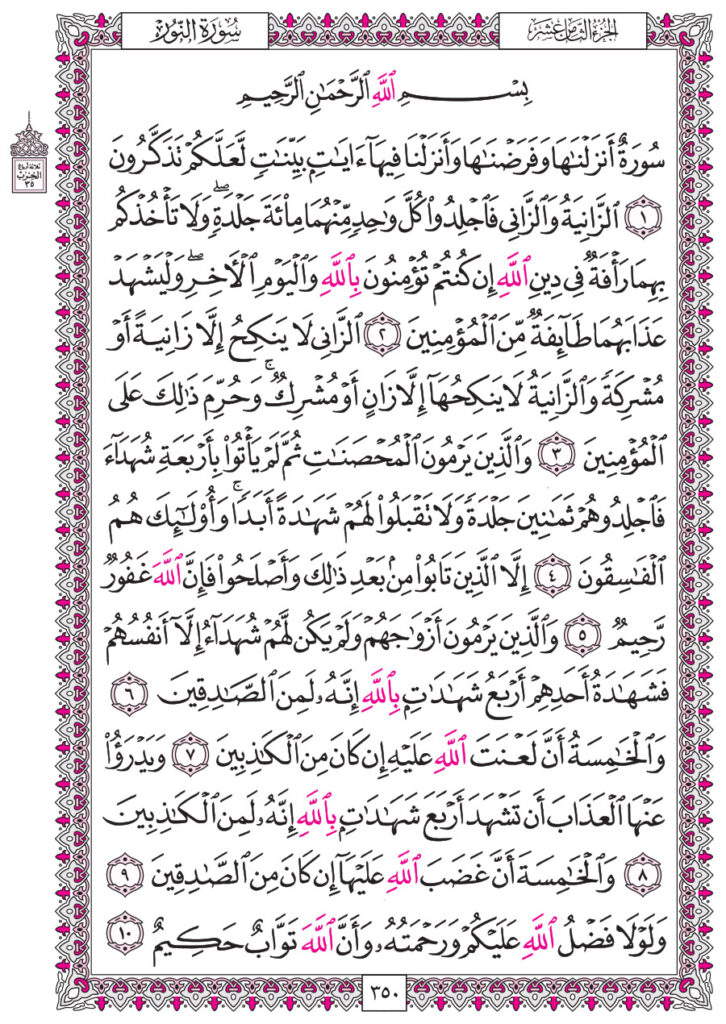 الجزء الثامن عشر
سورة النور
بِسْمِ اللَّهِ الرَّحْمَٰنِ الرَّحِيمِ
سُورَةٌ أَنزَلْنَٰهَا وَفَرَضْنَٰهَا وَأَنزَلْنَا فِيهَآ ءَايَٰتٍۭ بَيِّنَٰتٍ لَّعَلَّكُمْ تَذَكَّرُونَ
١ الزَّانِيَةُ وَالزَّانِى فَاجْلِدُوا۟ كُلَّ وَٰحِدٍ مِّنْهُمَا مِا۟ئَةَ جَلْدَةٍ ۖ وَلَا تَأْخُذْكُم
بِهِمَا رَأْفَةٌ فِى دِينِ اللَّهِ إِن كُنتُمْ تُؤْمِنُونَ بِاللَّهِ وَالْيَوْمِ الْءَاخِرِ ۖ وَلْيَشْهَدْ
عَذَابَهُمَا طَآئِفَةٌ مِّنَ الْمُؤْمِنِينَ ٢ الزَّانِى لَا يَنكِحُ إِلَّا زَانِيَةً أَوْ
مُشْرِكَةً وَالزَّانِيَةُ لَا يَنكِحُهَآ إِلَّا زَانٍ أَوْ مُشْرِكٌ ۚ وَحُرِّمَ ذَٰلِكَ عَلَى
الْمُؤْمِنِينَ ٣ وَالَّذِينَ يَرْمُونَ الْمُحْصَنَٰتِ ثُمَّ لَمْ يَأْتُوا۟ بِأَرْبَعَةِ شُهَدَآءَ
فَاجْلِدُوهُمْ ثَمَٰنِينَ جَلْدَةً وَلَا تَقْبَلُوا۟ لَهُمْ شَهَٰدَةً أَبَدًا ۚ وَأُو۟لَٰٓئِكَ هُمُ
الْفَٰسِقُونَ ٤ إِلَّا الَّذِينَ تَابُوا۟ مِنۢ بَعْدِ ذَٰلِكَ وَأَصْلَحُوا۟ فَإِنَّ اللَّهَ غَفُورٌ
رَّحِيمٌ ٥ وَالَّذِينَ يَرْمُونَ أَزْوَٰجَهُمْ وَلَمْ يَكُن لَّهُمْ شُهَدَآءُ إِلَّآ أَنفُسُهُمْ
فَشَهَٰدَةُ أَحَدِهِمْ أَرْبَعُ شَهَٰدَٰتٍۭ بِاللَّهِ إِنَّهُۥ لَمِنَ الصَّٰدِقِينَ ٦
وَالْخَٰمِسَةُ أَنَّ لَعْنَتَ اللَّهِ عَلَيْهِ إِن كَانَ مِنَ الْكَٰذِبِينَ ٧ وَيَدْرَؤُا۟
عَنْهَا الْعَذَابَ أَن تَشْهَدَ أَرْبَعَ شَهَٰدَٰتٍۭ بِاللَّهِ إِنَّهُۥ لَمِنَ الْكَٰذِبِينَ
٨ وَالْخَٰمِسَةَ أَنَّ غَضَبَ اللَّهِ عَلَيْهَآ إِن كَانَ مِنَ الصَّٰدِقِينَ ٩
وَلَوْلَا فَضْلُ اللَّهِ عَلَيْكُمْ وَرَحْمَتُهُۥ وَأَنَّ اللَّهَ تَوَّابٌ حَكِيمٌ ١٠
ثلاثة أرباع
الحزب
٣٥
٣٥٠